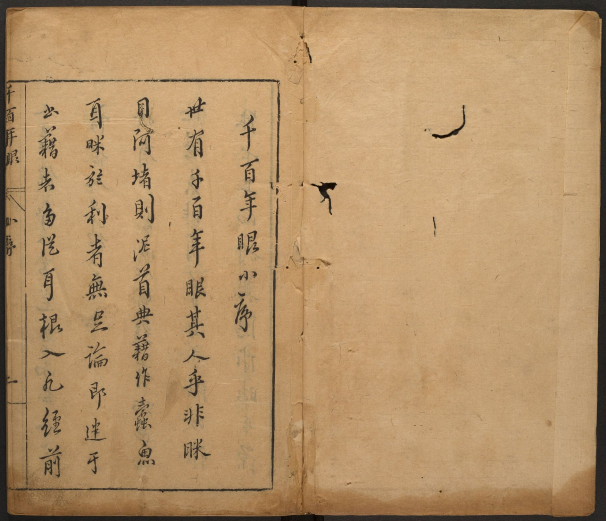 千百年眼小序
世有千百年眼其人乎非眯
目阿堵則泥首典藉作蠹魚
耳眯於利者無足論即迷于
典藉者多從耳根入凡經前
千百年眼
小序
一